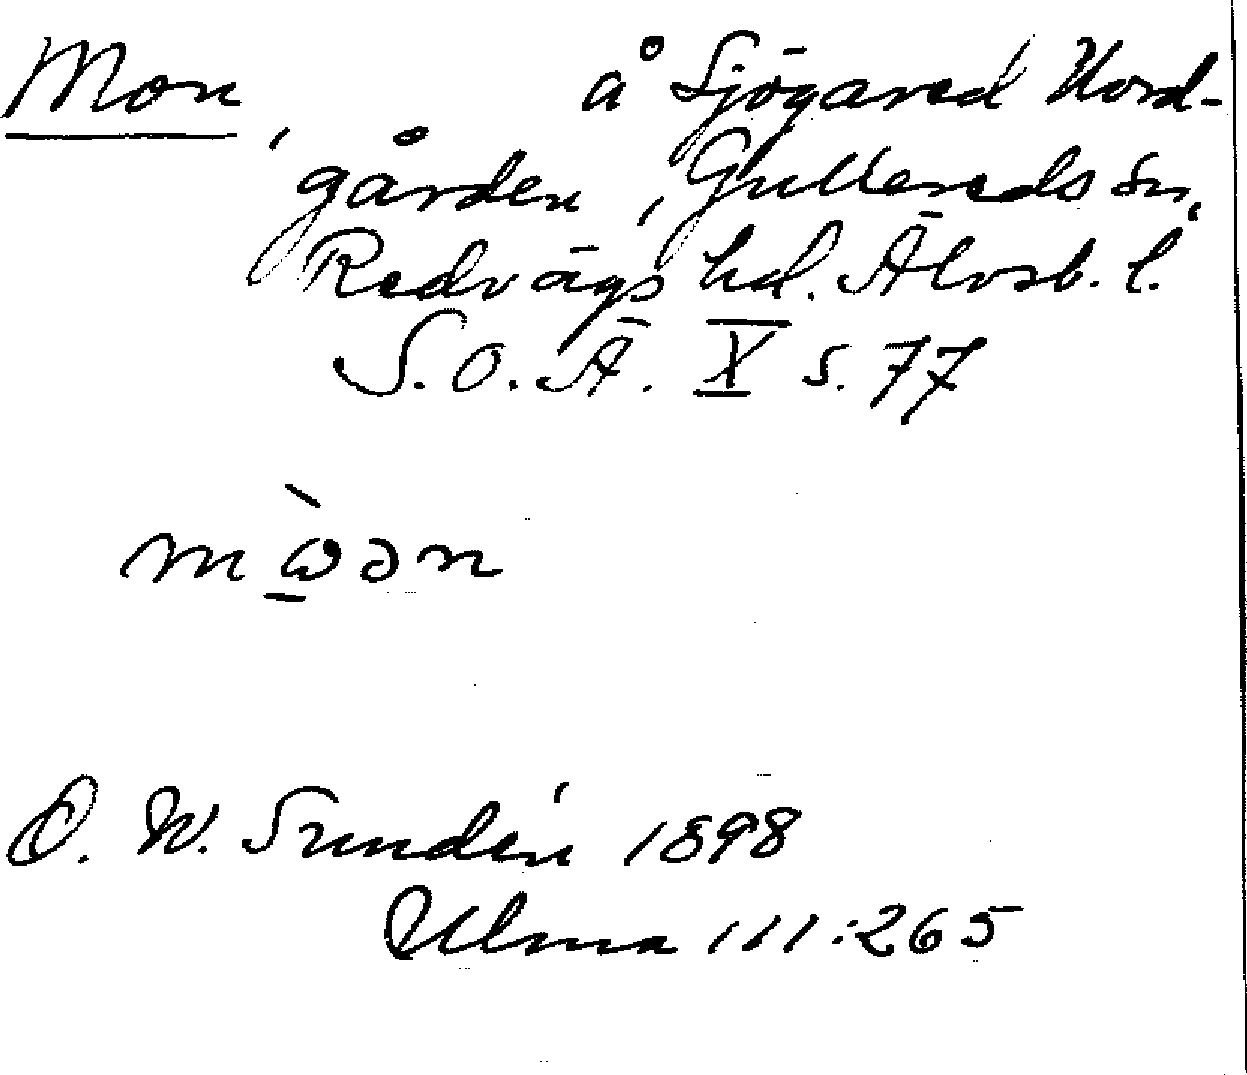 Mon, å Sjögared Nord-
gården, Gullereds sn,
Redvägs hd. Älvsb. l.
S. O. Ä. X s. 77
mὼ̱ən
D. W. Sundén 1898
Ulma 111:265